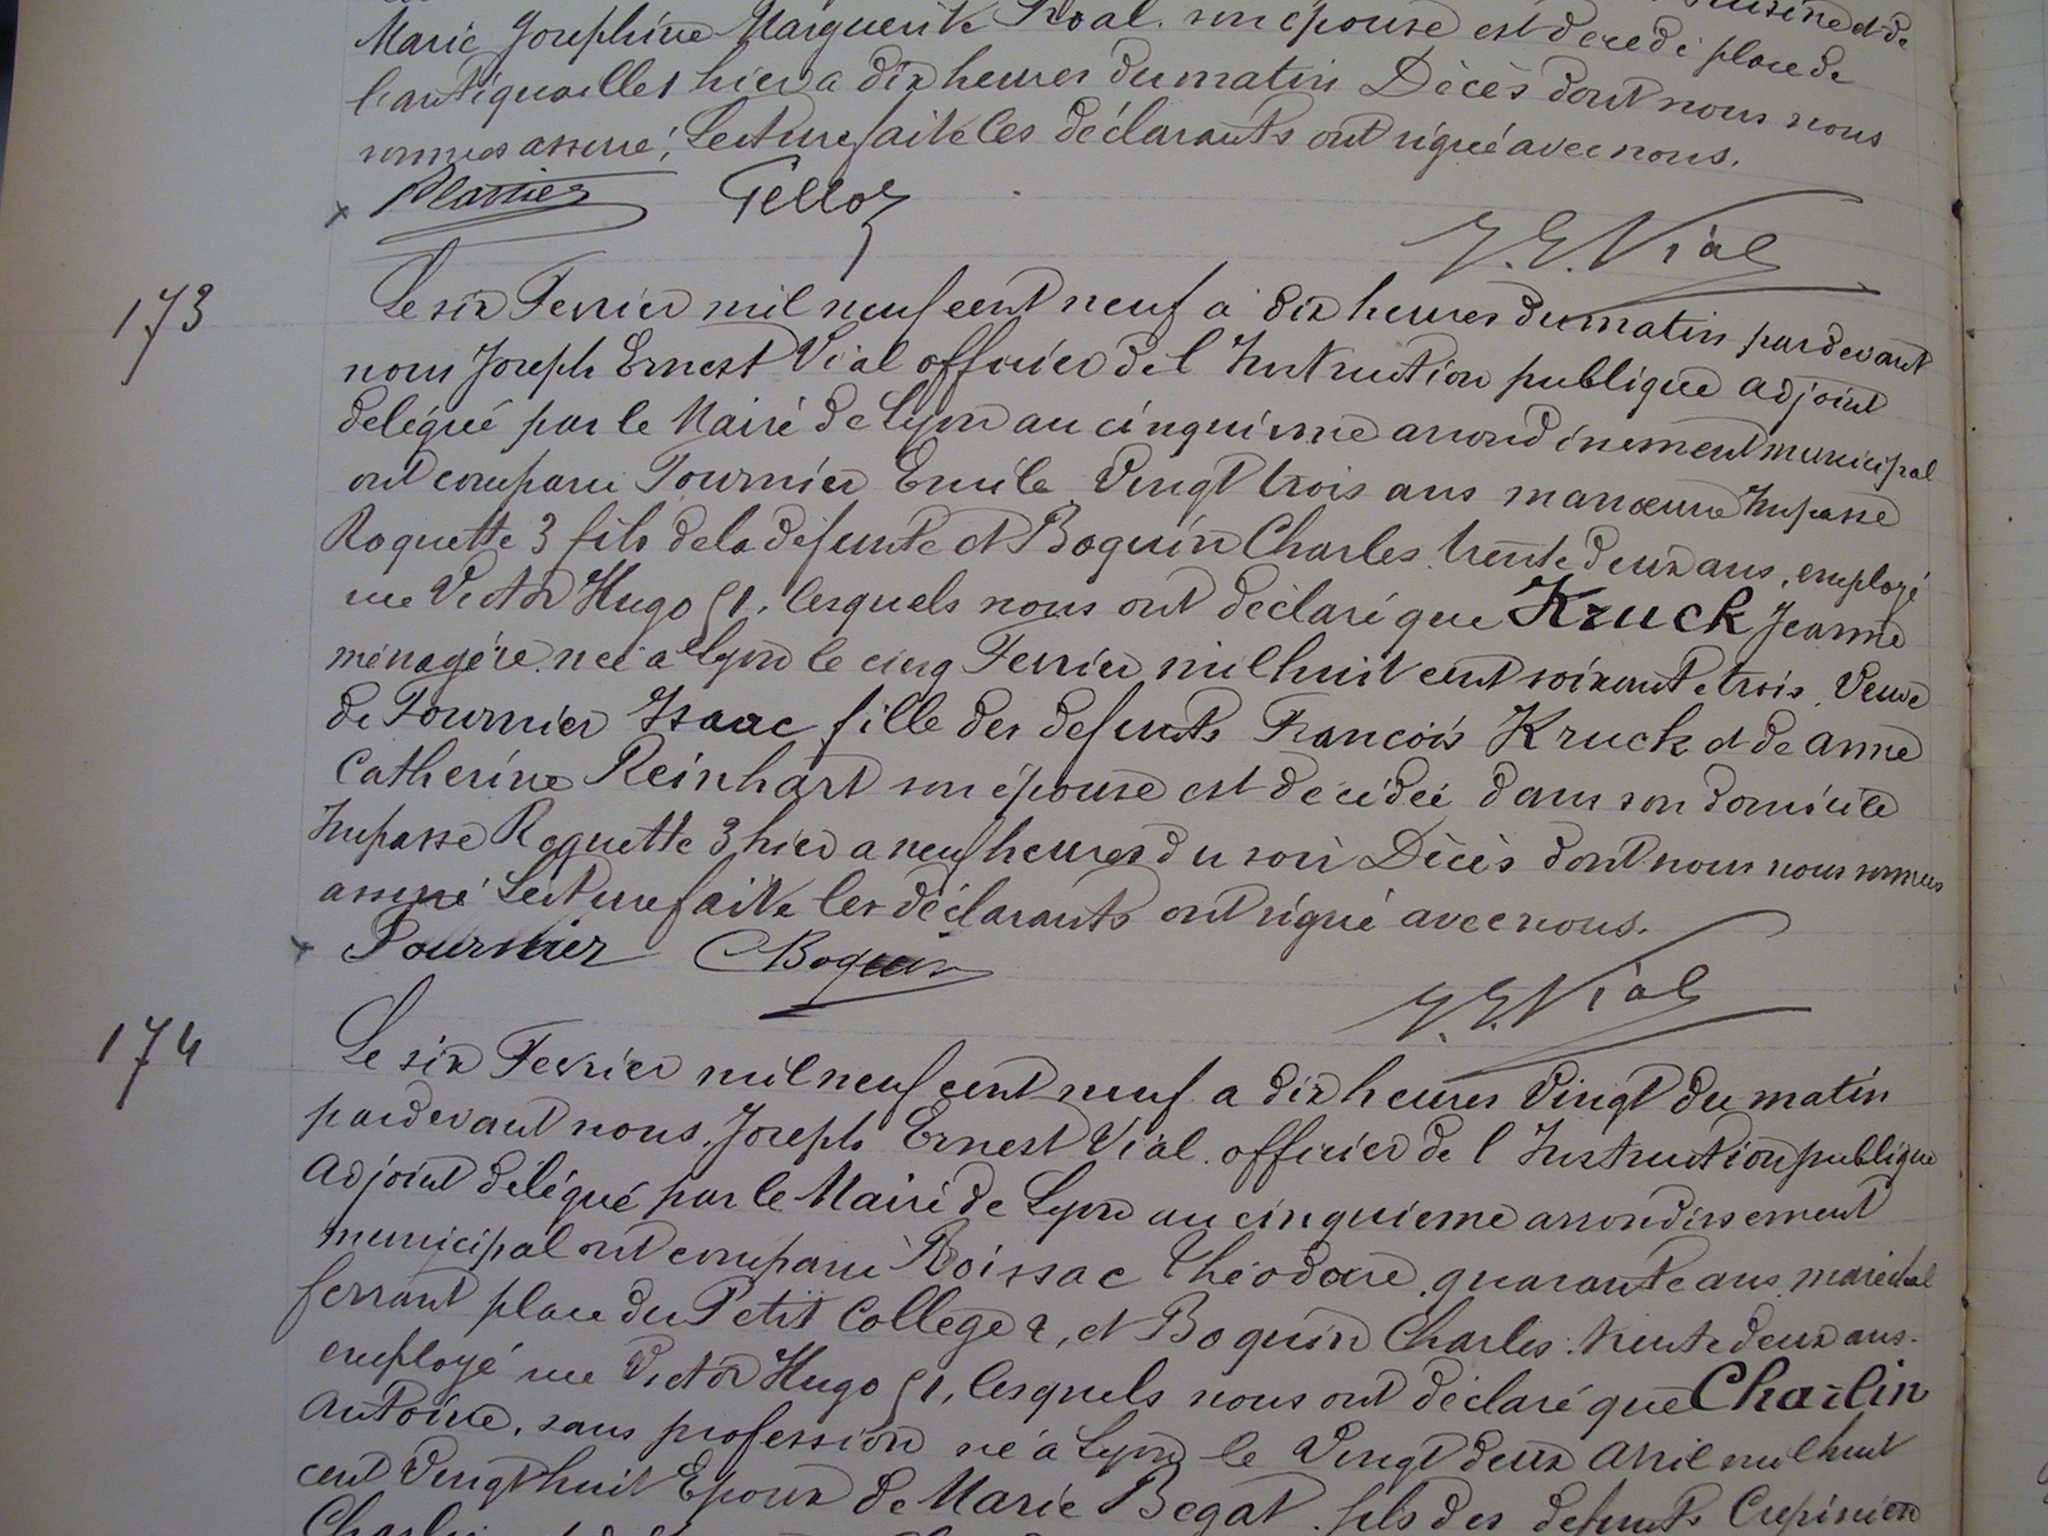 Marie Josephine Marguerite Proal son épouse est décédé place de
l'antiquailles 1 hier a dix heures du matin Décès dont nous nous
sommes assuré, Lecture faite les déclarants ont signé avec nous.
Gelloz
J. E. Vial
173
Le six Fevrier mil neuf cent neuf a dix heures du matin pardevant
nous Joseph Ernest Vial officier de l'Instruction publique adjoint
délégué par le Maire de Lyon au cinquieme arrondissement municipal
ont comparu Fournier Emile Vingt trois ans manœuvre Impasse
Roquette 3 fils de la défunte et Boquin Charles trente deux ans, employé
rue Victor Hugo 51, lesquels nous ont déclaré que Kruck Jeanne
ménagère née a Lyon le cinq Fevrier mil huit cent soixante trois, Veuve
de Fournier Isaac fille des defunts Francois Kruck et de Anne
Catherine Reinhart son épouse est décédée dans son domicile
Impasse Roquette 3 hier a neuf heures du soir Décès dont nous nous sommes
assuré Lecture faite les déclarants ont signé avec nous.
Fournier CBoquin
J. E. Vial
174
Le six Fevrier mil neuf cent neuf a dix heures Vingt du matin
pardevant nous, Joseph Ernest Vial officier de l'Instruction publique
Adjoint délégué par le Maire de Lyon au cinquieme arrondissement
municipal ont comparu Roissac Théodore, quarante ans, maréchal
ferrant place du Petit College 2, et Boquin Charles trente deux ans.
employé rue Victor Hugo 51, lesquels nous ont déclaré que Charlin
Antoine, sans profession né a Lyon le Vingt deux Avril mil huit
cent Vingt huit Epoux de Marie Begat fils des defunts Crepinien
Charlin